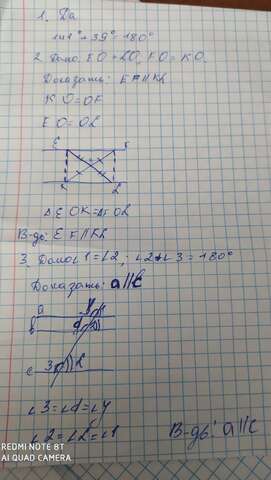 1. Да
141°+39°=180°
2. Дано: EO=LO, FO=KO.
Доказать: EF∥KL
KO=OF
EO=OL
E F
K L
ΔEOK=ΔFOL
В-дь: EF∥KL
3. Дано ∠1=∠2; ∠2+∠3=180°
Доказать: a∥c
a
b
c 3
∠3=∠d=∠y
∠2=∠L=∠1
В-дь: a∥c
REDMI NOTE 8T
AI QUAD CAMERA